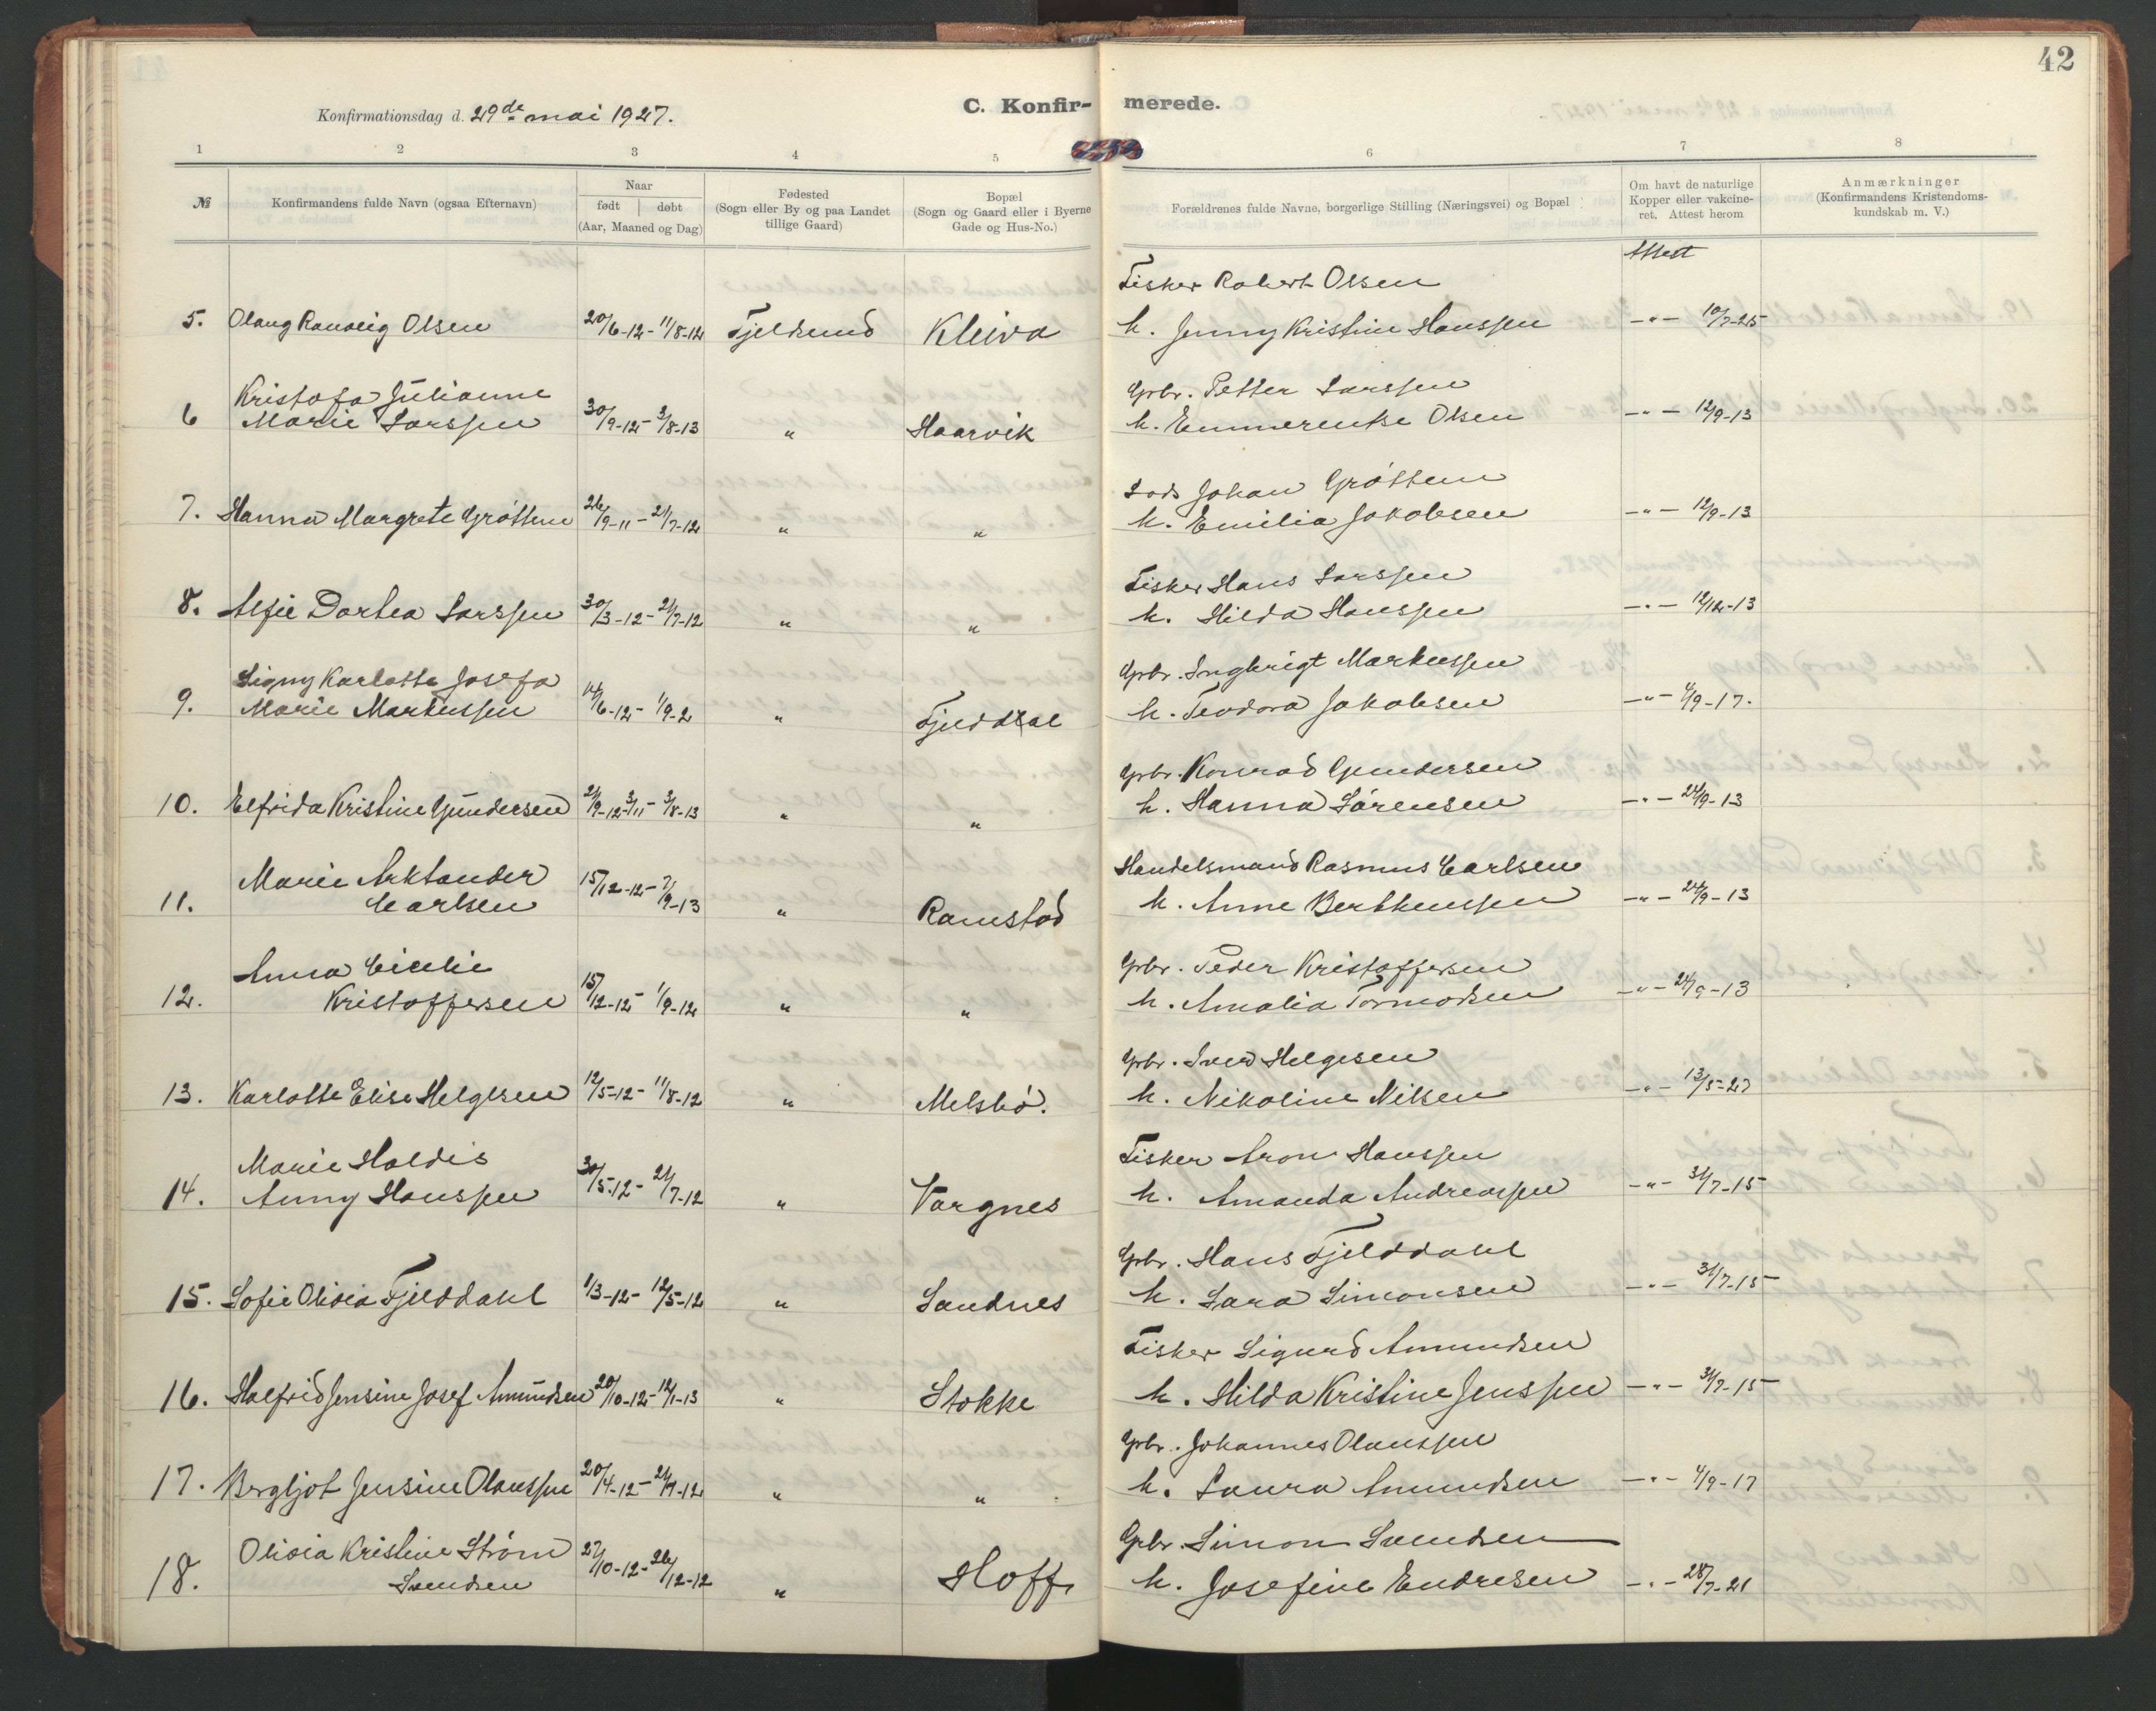 42
Konfirmationsdag d. 29de mai 1927.
C. Konfir- merede.
1 2 3 4 5 6 7 8
№
Konfirmandens fulde Navn (ogsaa Efternavn)
Naar
født | døbt
(Aar, Maaned og Dag)
Fødested
(Sogn eller By og paa Landet
tillige Gaard)
Bopæl
(Sogn og Gaard eller i Byerne
Gade og Hus-No.)
Forældrenes fulde Navne, borgerlige Stilling (Næringsvei) og Bopæl
Om havt de naturlige
Kopper eller vakcine-
ret. Attest herom
Anmærkninger
(Konfirmandens Kristendoms-
kundskab m. V.)
Attest
Fisker Robert Olsen
5. Olaug Ranveig Olsen 20/6-12 - 11/8-12 Fjeldsund Kleiva h. Jenny Kristine Hanssen -"- 10/7-25
Kristofa Julianne Gbr. Petter Larssen
6 Marie Larssen 30/9-12 - 3/8-13 " Haarvik h. Emmerentse Olsen -"- 12/9-13
Lods Johan Grøttem
7. Hanna Margrete Grøttem 26/9-11 - 21/7-12 " " h. Emilie Jakobsen -"- 12/9-13
Fisker Hans Larssen
8. Alfie Dortea Larssen 30/3-12 - 21/7-12 " " h. Hilda Hanssen -"- 12/12-13
Signy Karlotte Josefa Gbr. Ingbrigt Markussen
9. Marie Markussen 14/6-12 - 1/9-2 " Fjelddal h. Teodora Jakobsen -"- 4/9-17.
Gbr. Konrad Gundersen
10. Elfrida Kristine Gundersen 21/9-12 3/11 - 3/8-13 " " h. Hanna Sørensen -"- 24/9-13
Marie Arktander Handelsmand Rasmus Carlsen
11. Carlsen 15/12-12 - 7/9-13 " Ramstad h. Anne Bertheussen -"- 24/9-13
Anna Cicilie Gbr. Peder Kristoffersen
12. Kristoffersen 15/12-12 - 1/9-12 " " h. Amalia Tormodsen -"- 24/9-13
Gbr. Iver Helgesen
13. Karlotte Elise Helgesen 12/5-12 - 11/8-12 " Melsbø. h. Nikoline Nilsen -"- 13/5-27
Marie Haldis Fisker Aron Hanssen
14. Anny Hanssen 30/5-12 - 21/7-12 " Vargnes h. Amanda Andreassen -"- 31/7-15
Gbr. Hans Fjelddahl
15. Sofie Olivia Fjelddahl 1/3-12 - 12/5-12 " Sandnes h. Sara Simonsen -"- 31/7-15
Fisker Sigurd Amundsen
16. Halfrid Jensine Josef Amundsen 20/10-12 - 12/1-13 " Stokke h. Hilda Kristine Jenssen -"- 31/7-15
Gbr. Johannes Olaussen
17. Bergljot Jensine Olaussen 20/4-12 - 21/7-12 " " h. Laura Amundsen -"- 4/9-17
Olivia Kristine Strøm Gbr. Simon Svendsen
18. Svendsen 27/10-12 - 26/12-12 " Hoff. h. Josefine Endresen -"- 28/7-21